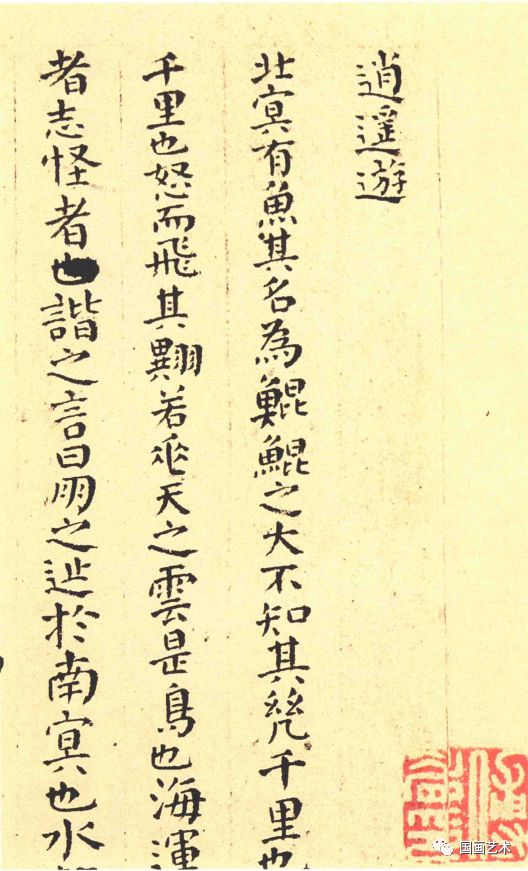 逍遥遊
北冥有魚其名為鯤鯤之大不知其幾千里也
千里也怒而飛其翼若垂天之雲是鳥也海運
者志怪者也諧之言曰朋之徙於南冥也水
国画艺术